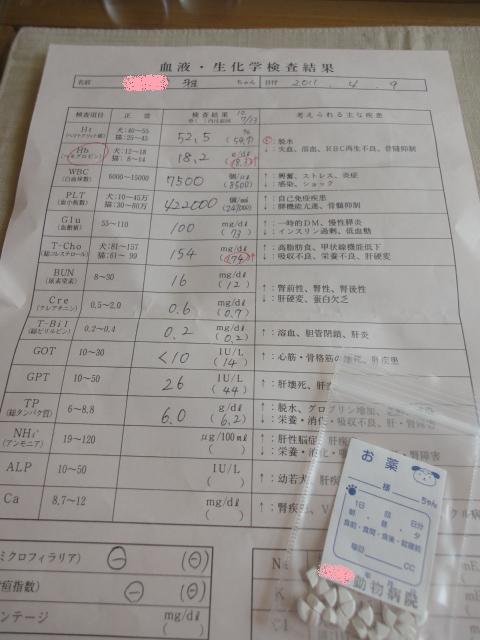 血液・生化学検査結果
名前 雅 ちゃん 日付 2011.4.9
検査項目 正常 検査結果 10 7/13 考えられる主な疾患
Ht (ヘマトクリット値) 犬:40~55 猫:25~45 52.5 % (54.7) ↑:脱水
↓:失血、溶血、RBC再生不良、骨髄抑制
Hb (ヘモグロビン) 犬:12~18 猫:8~14 18.2 g/dℓ
WBC (白血球数) 6000~15000 7500 (8500) ↑:興奮、ストレス、炎症
↓:感染、ショック
PLT (血小板数) 犬:10~45万 猫:30~80万 422000 (247000) ↑:自己免疫疾患
↓:脾機能亢進、骨髄抑制
Glu (血糖値) 55~110 100 mg/dℓ (73) ↑:一時的DM、慢性膵炎
↓:インスリン過剰、低血糖
T-Cho (総コレステロール) 犬:81~157 猫:61~99 154 mg/dℓ (174) ↑:高脂肪食、甲状腺機能低下
↓:吸収不良、栄養不良、肝硬変
BUN (尿素窒素) 8~30 16 mg/dℓ (12) ↑:腎前性、腎性、腎後性
↓:肝硬変、蛋白欠乏
Cre (クレアチニン) 0.5~2.0 0.6 mg/dℓ (0.7)
T-Bil (総ビリルビン) 0.2~0.4 0.2 mg/dℓ (0.2) ↑:溶血、胆管閉鎖、肝炎
GOT 10~30 <10 IU/L (14) ↑:心筋・骨格筋の壊死、肝疾患
GPT 10~50 26 IU/L (44) ↑:肝壊死、肝
TP (総タンパク質) 6~8.8 6.0 g/dℓ (6.2) ↑:脱水、グロブリン増加
↓:栄養・消化・吸収不良、肝・腎障害
NH₄⁺ (アンモニア) 19~120 μg/100mℓ ( ) ↑:肝性脳症、肝疾
↓:栄養・消化・吸 腎障害
ALP 10~50 IU/L ( ) ↑:幼若犬、肝疾
Ca 8.7~12 mg/dℓ ( ) ↑:腎疾患、V
ミクロフィラリア) ⊖ (⊖)
疸指数) ⊖ (⊖)
ンテージ mg/dℓ ( )
お薬
様 ちゃん
1日 回 日分
朝・昼・夕
食前・食間・食後・就寝前
毎回 CC
年 月 日
動物病院